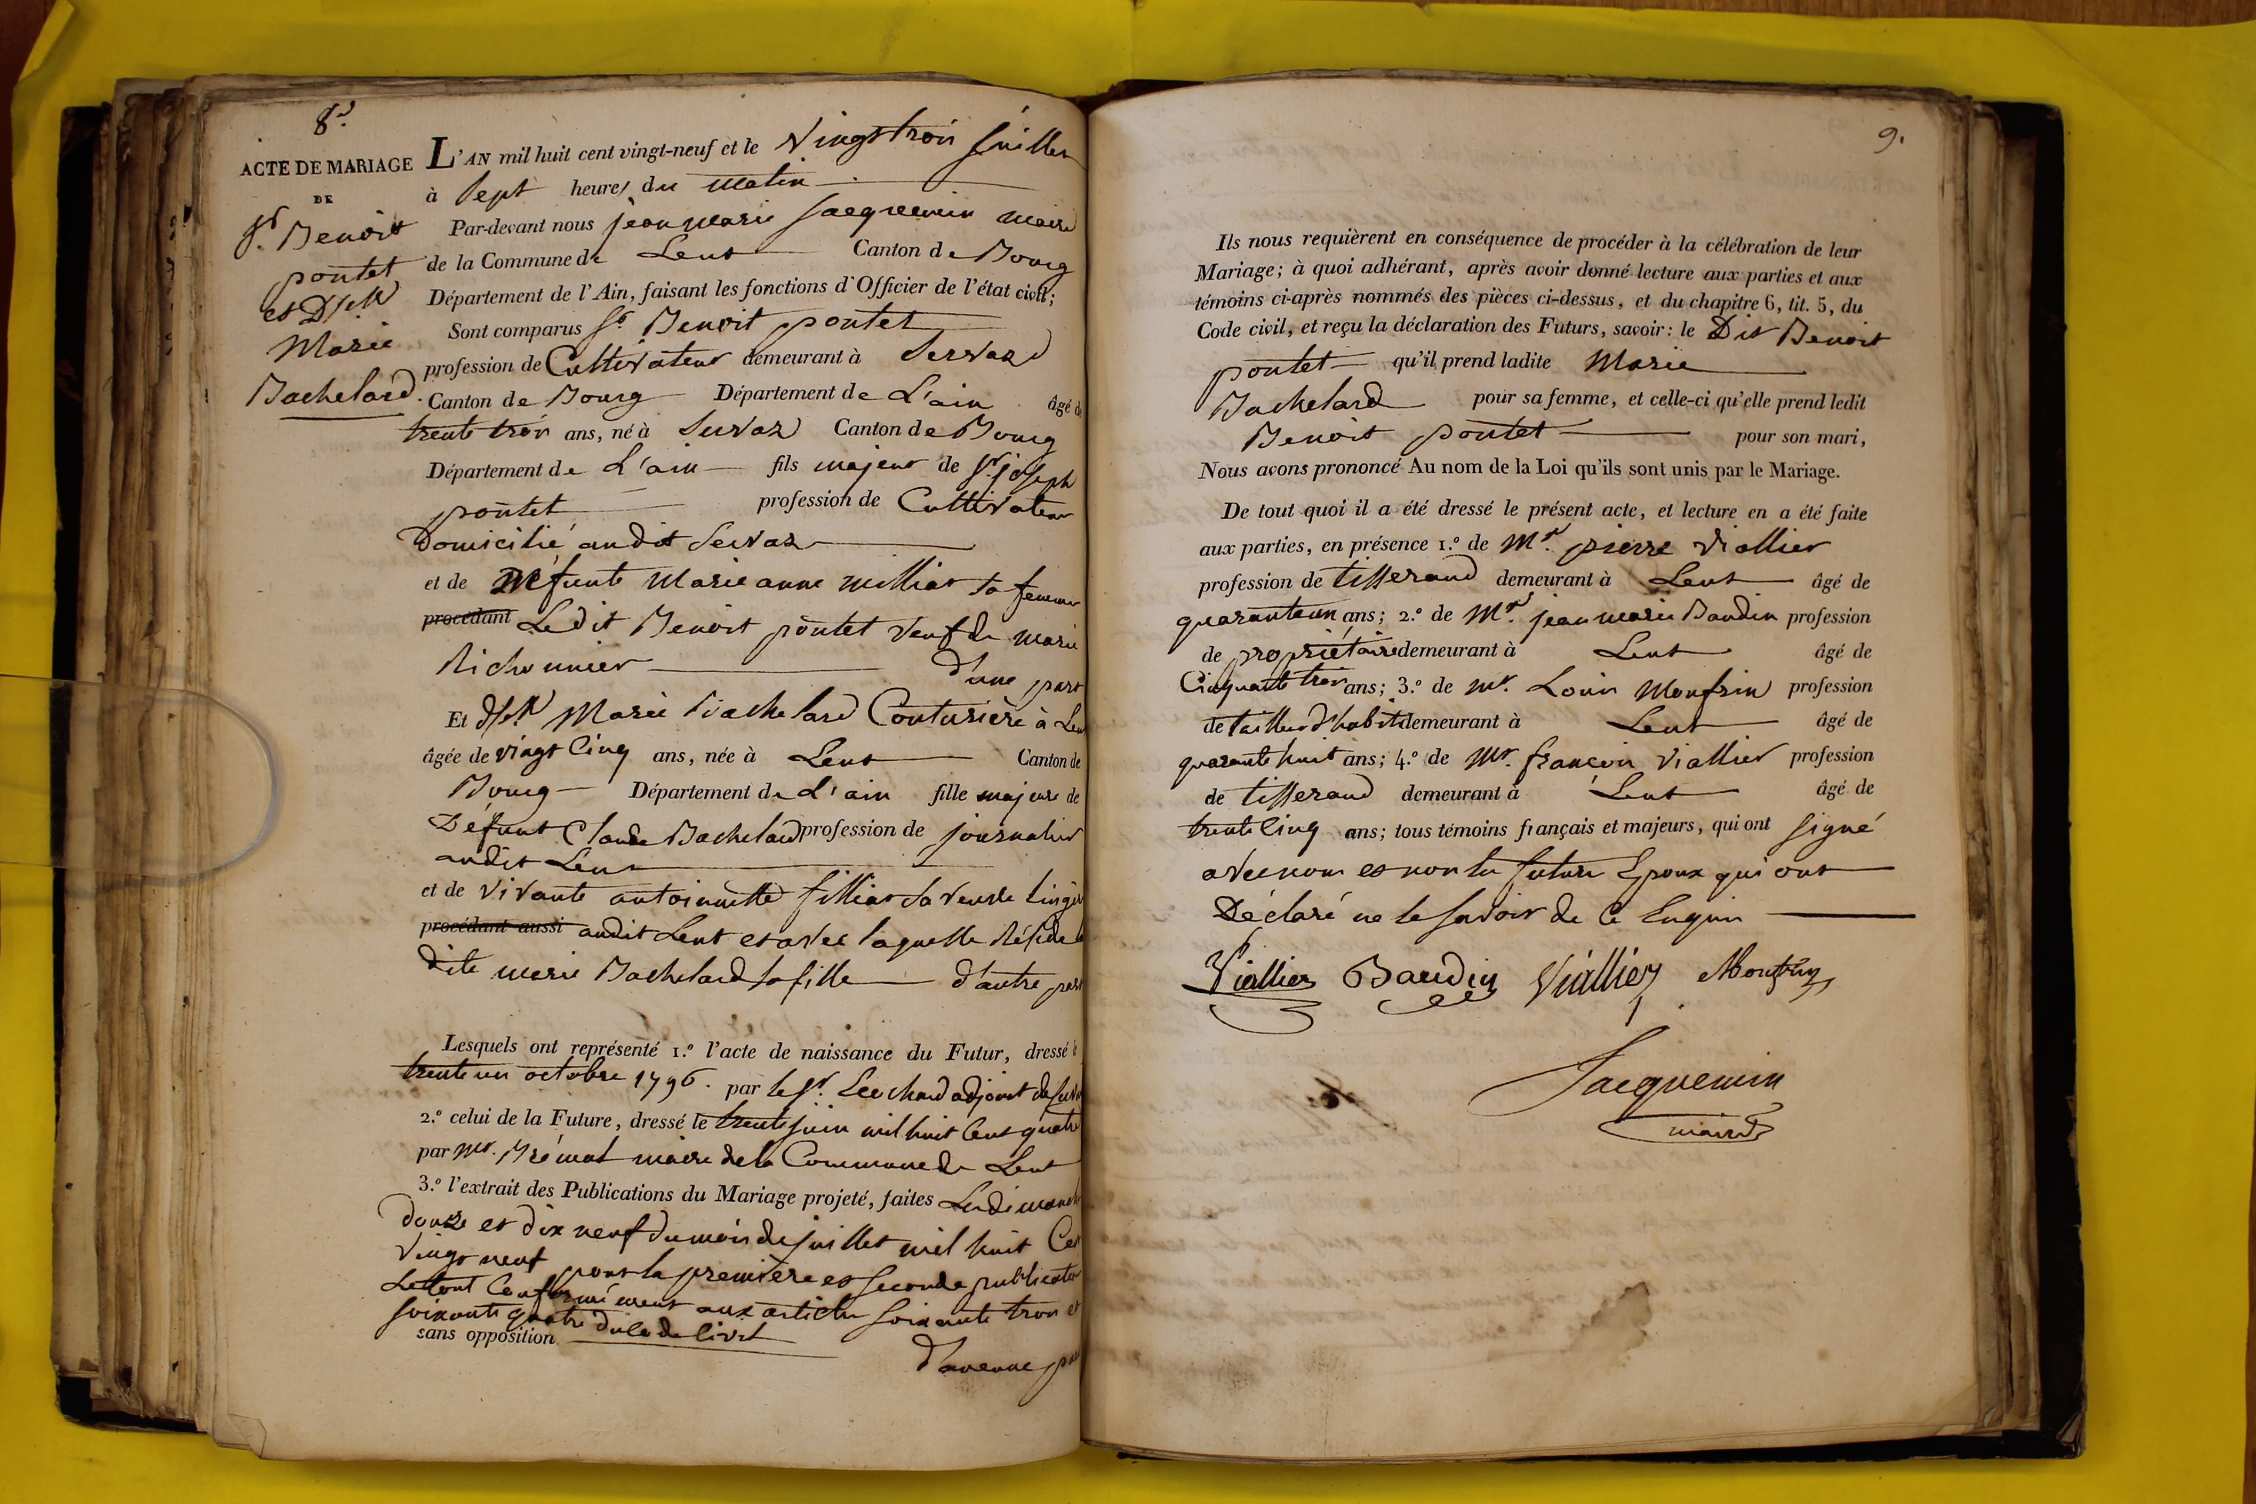 8e.
ACTE DE MARIAGE
DE
Sr. Benoit
pontet
et Dlle
Marie
Bachelard.
L'AN mil huit cent vingt-neuf et le vingt trois juillet
à sept heures du matin
Par-devant nous jean marie jacquemin maire
de la Commune de Lent Canton de Bourg
Département de l'Ain, faisant les fonctions d'Officier de l'état civil;
Sont comparus Sr. Benoit pontet
profession de Cultivateur demeurant à Servaz
Canton de Bourg Département de L'ain âgé de
trente trois ans, né à Servaz Canton de Bourg
Département de L'ain fils majeur de Sr. joseph
pontet profession de Cultivateur
Domicilié audit Servaz
et de Défunte Marie anne milliat sa femme
procédant Ledit Benoit pontet veuf de marie
Richonnier d'une part
Et dlle Marie Bachelard Couturière à Lent
âgée de vingt cinq ans, née à Lent Canton de
Bourg Département de L'ain fille majeure de
Défunt Claude Bachelard profession de journalier
audit Lent
et de vivante antoinette filliat sa veuve lingère
procédant aussi audit Lent et avec laquelle Réside la
dite marie Bachelard sa fille d'autre part
Lesquels ont représenté 1.º l'acte de naissance du Futur, dressé le
trente un octobre 1796. par le Sr. adjoint de Servaz
2.º celui de la Future, dressé le trente juin mil huit Cent quatre
par Mr. maire de la Commune de Lent
3.º l'extrait des Publications du Mariage projeté, faites Les dimanche
douze et dix neuf du mois de juillet mil huit Cent
vingt neuf pour la première et seconde publication
Le tout Conformément aux articles soixante trois et
soixante quatre du Code Civil
sans opposition
d'aucune part
9.
Ils nous requièrent en conséquence de procéder à la célébration de leur
Mariage; à quoi adhérant, après avoir donné lecture aux parties et aux
témoins ci-après nommés des pièces ci-dessus, et du chapitre 6, tit. 5, du
Code civil, et reçu la déclaration des Futurs, savoir: le Dit Benoit
pontet qu'il prend ladite Marie
Bachelard pour sa femme, et celle-ci qu'elle prend ledit
Benoit pontet pour son mari,
Nous avons prononcé Au nom de la Loi qu'ils sont unis par le Mariage.
De tout quoi il a été dressé le présent acte, et lecture en a été faite
aux parties, en présence 1.º de Mr. pierre Viallier
profession de tisserand demeurant à Lent âgé de
quarante un ans; 2.º de Mr. jean marie Baudin profession
de propriétaire demeurant à Lent âgé de
Cinquante trois ans; 3.º de Mr. Louis Monfrin profession
de tailleur d'habits demeurant à Lent âgé de
quarante huit ans; 4.º de Mr. françois Viallier profession
de tisserand demeurant à Lent âgé de
trente Cinq ans; tous témoins français et majeurs, qui ont signé
avec nous et non les futurs Epoux qui ont
Déclaré ne le savoir de Ce Enquis
Viallier Baudin Viallier Monfrin
Jacquemin
maire